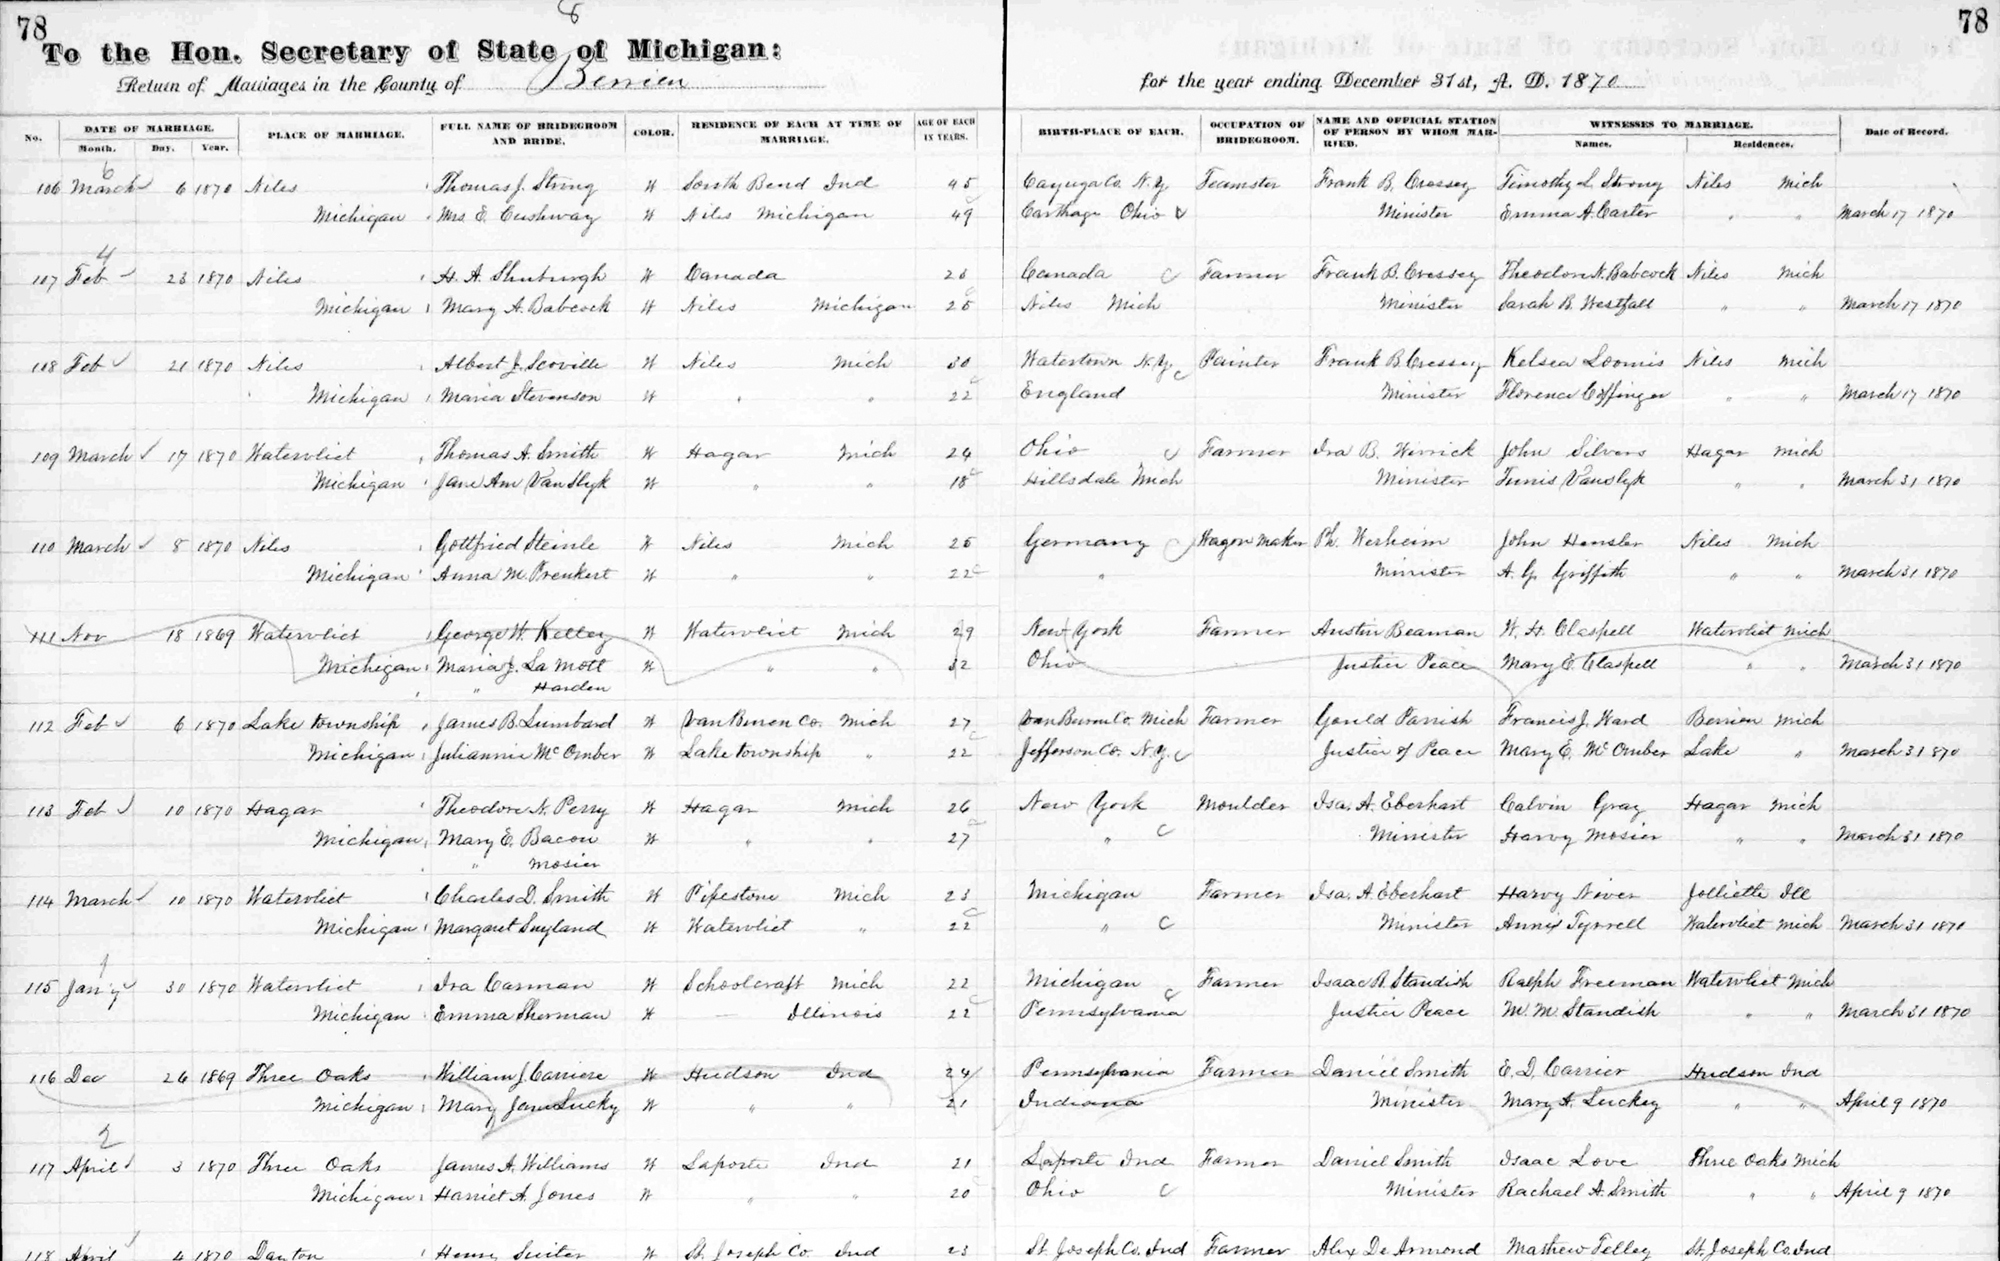 78 8 78
To the Hon. Secretary of State of Michigan:
Return of Marriages in the County of Berrien for the year ending December 31st, A. D. 1870
No. DATE OF MARRIAGE. PLACE OF MARRIAGE. FULL NAME OF BRIDEGROOM AND BRIDE. COLOR. RESIDENCE OF EACH AT TIME OF MARRIAGE. AGE OF EACH IN YEARS. BIRTH-PLACE OF EACH. OCCUPATION OF BRIDEGROOM. NAME AND OFFICIAL STATION OF PERSON BY WHOM MARRIED. WITNESSES TO MARRIAGE. Date of Record.
Month. Day. Year. Names. Residences.
6
106 March 6 1870 Niles Thomas J. Strong W South Bend Ind 45 Cayuga Co. N.Y. Teamster Frank B. Cressey Timothy L. Strong Niles Mich
Michigan Mrs E. Cushway W Niles Michigan 49 Carthage Ohio Minister Emma A. Carter " " March 17 1870
4
107 Feb 23 1870 Niles H. A. Shuburgh W Canada Canada Farmer Frank B. Cressey Theodore N. Babcock Niles Mich
Michigan Mary A. Babcock W Niles Michigan 25 Niles Mich Minister Sarah B. Westfall " " March 17 1870
108 Feb 21 1870 Niles Albert J. Scoville W Niles Mich 30 Watertown N.Y. Painter Frank B. Cressey Kelsea Loomis Niles Mich
Michigan Maria Stevenson W " " 22 England Minister Florence Coffinger " " March 17 1870
109 March 17 1870 Watervliet Thomas A. Smith W Hagar Mich 24 Ohio Farmer Ira B. Wirrick John Silvers Hagar Mich
Michigan Jane Ann Van Slyk W " " 18 Hillsdale Mich Minister Tunis Vanslyk " " March 31 1870
110 March 8 1870 Niles Gottfried Steinle W Niles Mich 25 Germany Wagon Maker Ph. Werheim John Hensler Niles Mich
Michigan Anna M. Preukert W " " 22 " Minister A. G. Griffith " " March 31 1870
111 Nov 18 1869 Watervliet George W. Kelley W Watervliet Mich 29 New York Farmer Austin Beaman W. H. Claspell Watervliet Mich
Michigan Maria J. La Mott W " " 32 Ohio Justice Peace Mary E. Claspell " " March 31 1870
" Harden
112 Feb 6 1870 Lake township James B. Lumbard W Van Buren Co. Mich 27 Van Buren Co. Mich Farmer Gould Parrish Francis J. Ward Berrien Mich
Michigan Juliannie Mc Omber W Lake township " 22 Jefferson Co. N.Y. Justice of Peace Mary E. Mc Omber Lake " March 31 870
113 Feb 10 1870 Hagar Theodore N. Perry W Hagar Mich 26 New York Moulder Isa. A. Eberhart Calvin Gray Hagar Mich
Michigan Mary E. Bacon W " " 27 " Minister Harvy Mosier " " March 31 1870
" Mosier
114 March 10 1870 Watervliet Charles D. Smith W Pipestone Mich 23 Michigan Farmer Isa. A Eberhart Harvy Niver Jolliette Ill
Michigan Margaret Suyland W Watervliet " 22 " Minister Annis Tyrrell Watervliet Mich March 31 1870
1
115 Jan'y 30 1870 Watervliet Ira Carman W Schoolcraft Mich 22 Michigan Farmer Isaac R. Standish Ralph Freeman Watervliet Mich
Michigan Emma Sherman W — Illinois 22 Pennsylvania Justice Peace M. M. Standish " " March 31 1870
116 Dec 26 1869 Three Oaks William J. Carriere W Hudson Ind 24 Pennsylvania Farmer Daniel Smith E. D. Carrier Hudson Ind
Michigan Mary Jane Lucky W " " 21 Indiana Minister Mary A. Luckey " " April 9 1870
2
117 April 3 1870 Three Oaks James A. Williams W Laporte Ind 21 Laporte Ind Farmer Daniel Smith Isaac Love Three Oaks Mich
Michigan Harriet A. Jones W " " 20 Ohio Minister Rachael A. Smith " " April 9 1870
118 April 4 1870 Dayton Henry Suiter W St. Joseph Co. Ind 23 St. Joseph Co. Ind Farmer Alex De Armond Mathew Felley St. Joseph Co. Ind